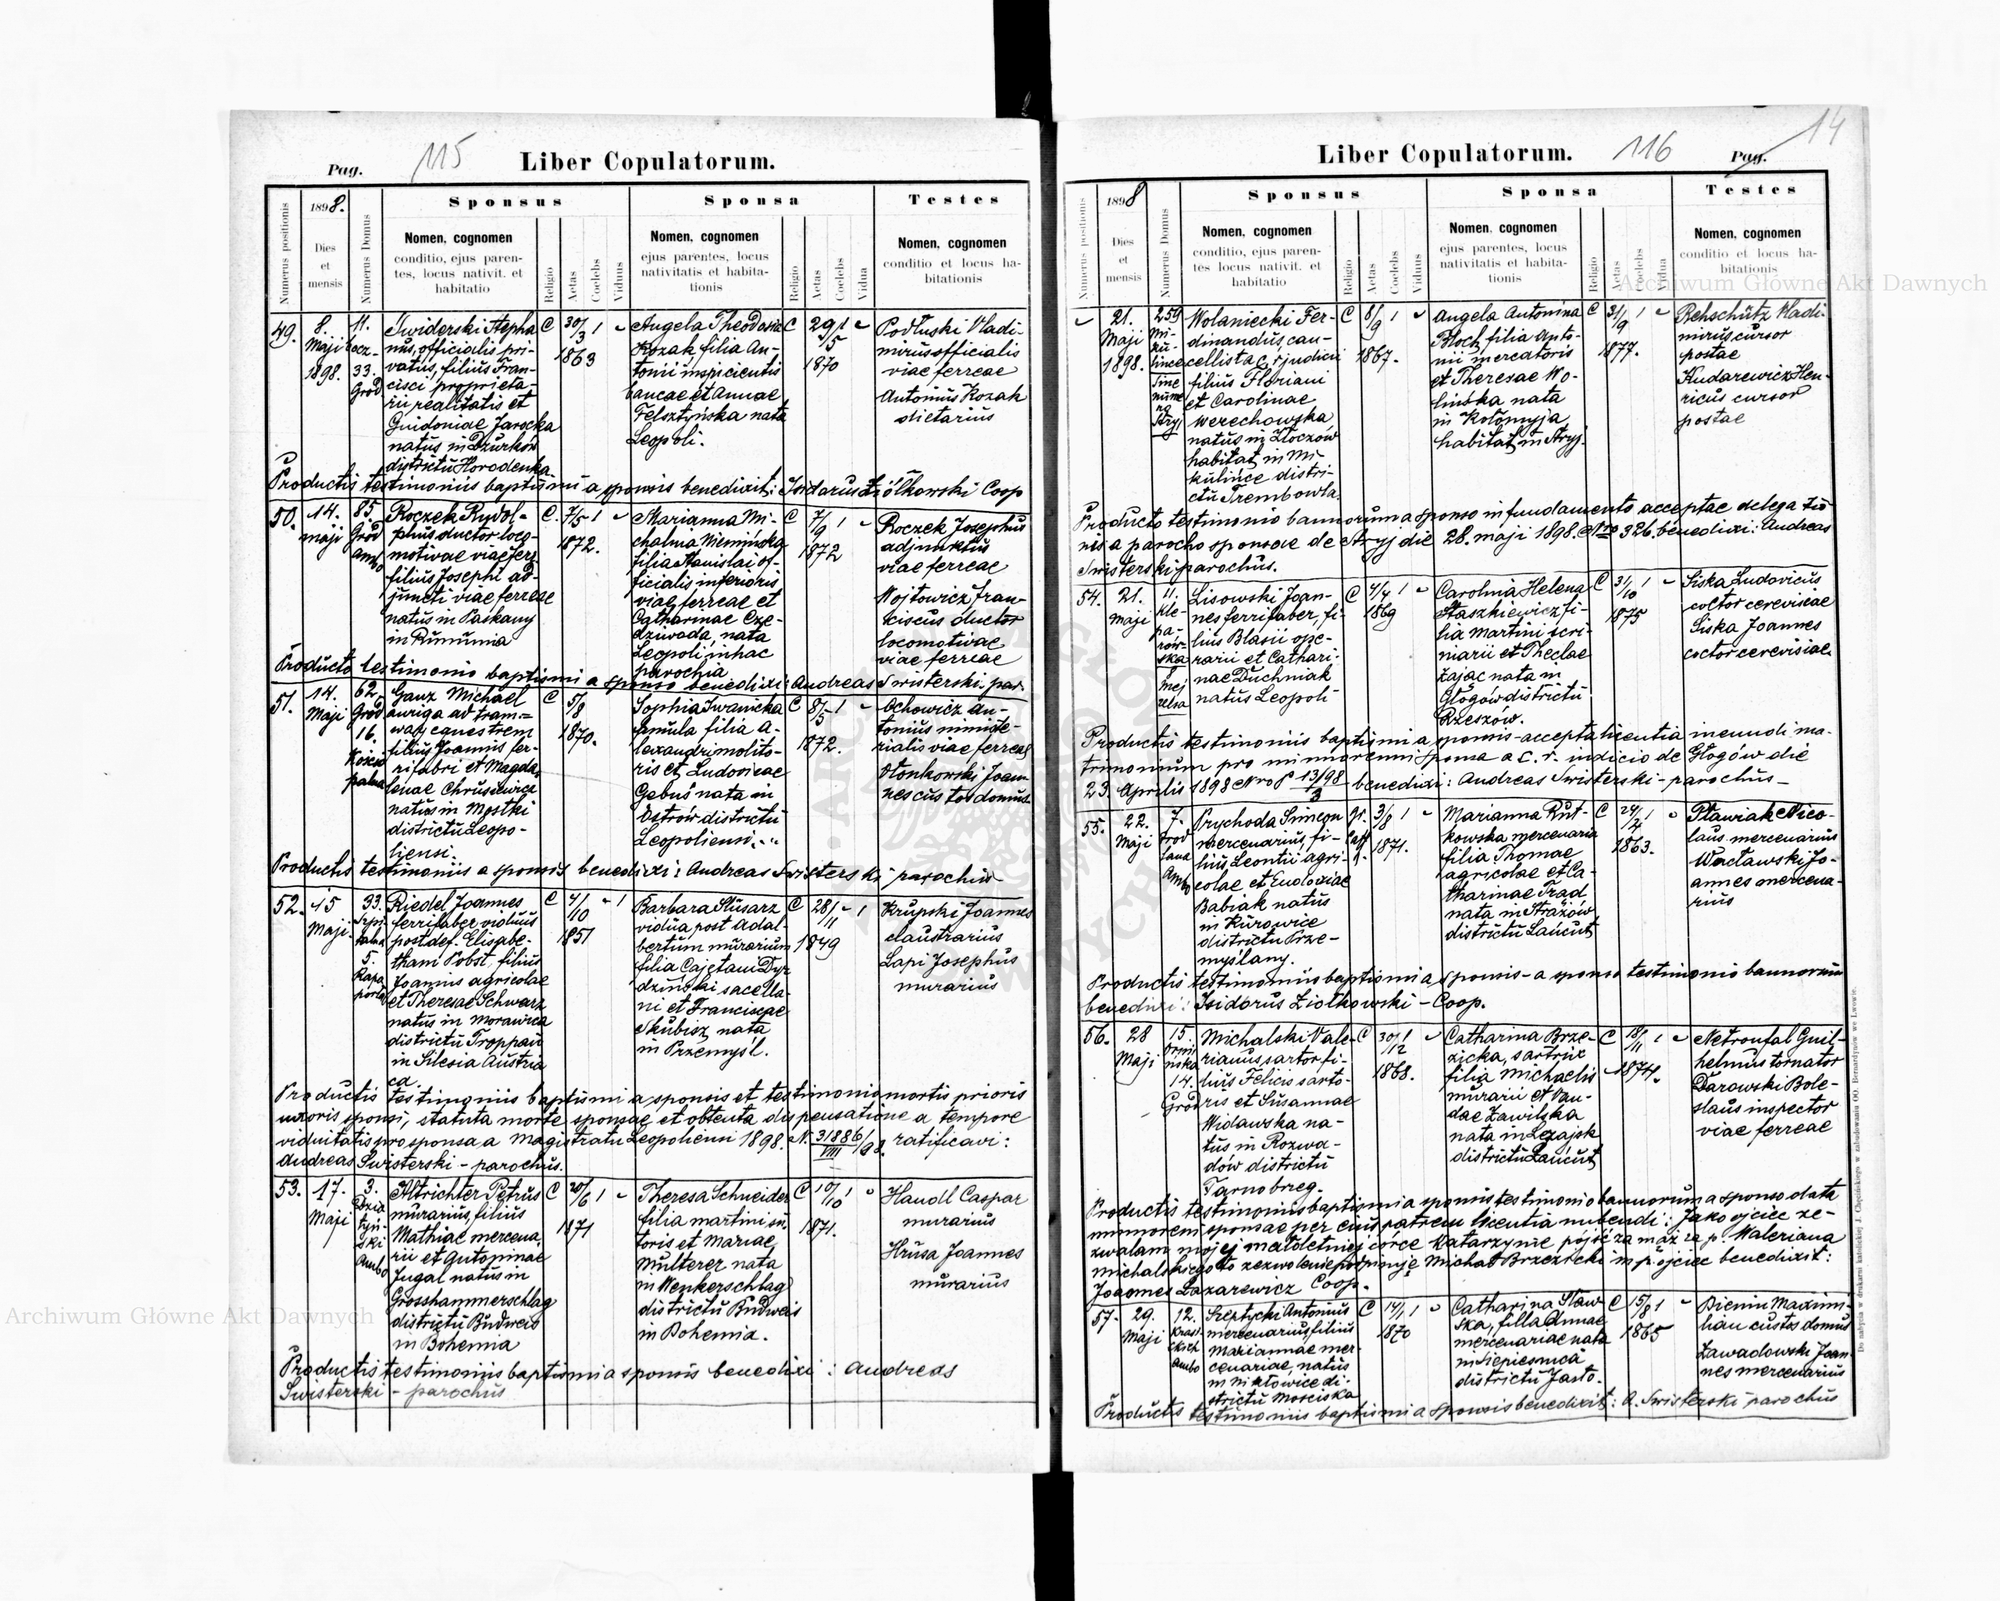 Pag. 115 Liber Copulatorum.
Numerus positionis
1898.
Dies
et
mensis
Numerus Domus
Sponsus
Nomen, cognomen
conditio, ejus paren-
tes, locus nativit. et
habitatio
Religio
Aetas
Coelebs
Viduus
Sponsa
Nomen, cognomen
ejus parentes, locus
nativitatis et habita-
tionis
Religio
Aetas
Coelebs
Vidua
Testes
Nomen, cognomen
conditio et locus ha-
bitationis
49.
8.
Maji
1898.
11.
33.
Gród
Swiderski Stepha
nus, officialis pri-
vatus, filius Fran-
cisci proprieta-
rii realitatis et
Guidoniae Jarocka
natus in Dżurków
districtu Horodenka
C
30/3 1
1863
Angela Theodosia
Kozak filia An-
tonii inspicientis
bancae et Annae
Felsztyńska nata
Leopoli.
C
29/5 1
1870
Podłuski Vladi-
mirus officialis
viae ferreae
Antonius Kozak
dietarius
Productis testimoniis baptismi a sponsis benedixit: Isidorus Ziółkowski Coop
50.
14.
Maji
85.
Gród
ambo
Roczek Rudol-
phus ductor loco-
motivae viae ferr
filius Josephi ad-
juncti viae ferreae
natus in Paskany
in Rumunia
C.
7/5 1
1872.
Marianna Mi-
chalina Niemińska
filia Stanislai of-
ficialis inferioris
viae ferreae et
Catharinae Cze-
dzuwada, nata
Leopoli in hac
parochia
C
7/9 1
1872
Roczek Josephus
adjunktus
viae ferreae
Wojtowicz Fran-
ciscus ductor
locomotivae
viae ferreae
Producto testimonio baptismi a sponso benedixi: Andreas Swisterski par.
51.
14.
Maji
62.
Gród
16.
Ganz Michael
auriga ad tram-
way equestrem
filius Joannis fer-
rifabri et Magda-
lenae Chrusiewicz
natus in Mostki
districtu Leopo-
liensi
C
5/8
1870.
Sophia Iwanicka
famula filia A-
lexandri molito-
ris et Ludovicae
Gebuś nata in
Ostrów districtu
Leopoliensi
C
8/5 1
1872.
Ochowicz An-
tonius ministe-
rialis viae ferreae
Słonkowski Joan-
nes custos domus
Productis testimoniis a sponsis benedixi: Andreas Swisterski parochus
52.
15
Maji
33.
5.
Riedel Joannes
ferrifaber viduus
post def. Elisabe-
tham Pobst filius
Joannis agricolae
et Theresae Schwarz
natus in Morawica
districtu Troppau
in Silesia Austria
ca.
C
4/10 1
1851
Barbara Ślusarz
vidua post Adal-
bertum murarium
filia Cajetani Dyr
dzinski sacella-
ni et Franciscae
Skubisz nata
in Przemyśl.
C
28/11 1
1849
Krupski Joannes
claustrarius
Lapi Josephus
murarius
Productis testimoniis baptismi a sponsis et testimonio mortis prioris
uxoris sponsi, statuta morte sponsae et obtenta dispensatione a tempore
viduitatis pro sponsa a Magistratu Leopoliensi 1898. N. 31886/VIII /98. ratificavi:
Andreas Swisterski - parochus.
53.
17.
Maji
3.
Ambo
Altrichter Petrus
murarius, filius
Mathiae mercena-
rii et Antoninae
Jugal natus in
Grosshammerschlag
districtu Budweis
in Bohemia
C
20/6 1
1871
Theresa Schneider
filia Martini su-
toris et Mariae
Multerer nata
in Wenkerschlag
districtu Budweis
in Bohemia.
C
10/10 1
1871.
Handl Caspar
murarius
Hrusa Joannes
murarius
Productis testimoniis baptismi a sponsis benedixi: Andreas
Swisterski - parochus
14
Liber Copulatorum. 116 Pag.
Numerus positionis
1898
Dies
et
mensis
Numerus Domus
Sponsus
Nomen, cognomen
conditio, ejus paren-
tes locus nativit. et
habitatio
Religio
Aetas
Coelebs
Viduus
Sponsa
Nomen, cognomen
ejus parentes, locus
nativitatis et habita-
tionis
Religio
Aetas
Coelebs
Vidua
Testes
Nomen, cognomen
conditio et locus ha-
bitationis
21.
Maji
1898.
259
Mi-
ku-
lince
Sine
nume
ro
Stryj
Wolaniecki Fer-
dinandus, can-
cellista c. r. judicii
filius Floriani
et Carolinae
Werechowska
natus in Złoczów
habitat in Mi-
kulince distri-
ctu Trembowla
C
8/9 1
1867.
Angela Antonina
Bloch, filia Anto-
nii mercatoris
et Theresae Wo-
linska nata
in Kołomyja
habitat in Stryj
C
31/9 1
1877.
Rehschütz Wladi-
mirus, cursor
postae
Kudarewicz Hen-
ricus cursor
postae
Producto testimonio bannorum a sponso in fundamento acceptae delegatio
nis a parocho sponsae de Stryj die 28. maji 1898. Nro 326. benedixi: Andreas
Swisterski parochus.
54.
21.
Maji
11.
Kle-
pa-
row-
ska
Lisowski Joan-
nes ferrifaber, fi-
lius Blasii ope-
rarii et Cathari-
nae Duchniak
natus Leopoli
C
4/4 1
1869
Carolina Helena
Staszkiewicz fi-
lia Martini scri-
niarii et Theclae
Zając nata in
Głogów districtu
Rzeszów.
C
31/10 1
1875
Siska Ludovicus
coctor cerevisiae
Siska Joannes
coctor cerevisiae
Productis testimoniis baptismi a sponsis - accepta licentia ineundi ma-
trimonium pro minorenni sponsa a C. r. judicio de Głogów die
23. Aprilis 1898 Nro P 13/98/3 - benedixi: Andreas Swisterski - parochus -
55.
22.
Maji
7.
Ambo
Prychoda Simeon
mercenarius, fi-
lius Leontii agri-
colae et Eudoxiae
Babiak natus
in Kurowice
districtu Prze-
myślany.
gr.
cath
3/8 1
1871.
Marianna Rut-
kowska mercenaria
filia Thomae
agricolae et Ca-
tharinae Trad
nata in Strażów
districtu Łańcut
C
24/2 1
1863.
Pławiak Nico-
laus mercenarius
Wacławski Jo-
annes mercena-
rius
Productis testimoniis baptismi a sponsis - a sponso testimonio bannorum
benedixi: Isidorus Ziołkowski - Coop.
56.
28
Maji
15.
14.
Gród
Michalski Vale-
rianus sartor fi-
lius Felicis sarto-
ris et Susannae
Widawska na-
tus in Rozwa-
dów districtu
Tarnobrzeg.
C
30/12 1
1868.
Catharina Brze-
zicka, sartrix
filia Michaelis
murarii et Van-
dae Zawilska
nata in Leżajsk
districtu Łańcut
C
18/11 1
1874.
Netroufal Guil-
helmus tornator
Darowski Bole-
slaus inspector
viae ferreae
Productis testimoniis baptismi a sponsis testimonio bannorum a sponso data
minorenni sponsae per eius patrem licentia nubendi: Jako ojciec ze-
zwalam mojej małoletniej córce Katarzynie pójść za mąż za p. Waleriana
Michalskiego to zezwolenie podpisuję Michał Brzezicki mp. ojciec benedixit:
Joannes Łazarewicz Coop.
57.
29.
Maji
12.
ambo
Szeptycki Antonius
mercenarius, filius
Mariannae mer-
cenariae, natus
in Niktowice di-
strictu Mościska
C
14/1 1
1870
Catharina Staw-
ska, filia Annae
mercenariae nata
in Siepiesnica
districtu Jasło.
C
15/8 1
1865
Bieniu Maximi-
lian custos domus
Zawadowski Joan-
nes mercenarius
Productis testimoniis baptismi a sponsis benedixit: A. Swisterski parochus
Do nabycia w drukarni katolickiej J. Chęcińskiego w zabudowaniu OO. Bernardynów we Lwowie.
Archiwum Główne Akt Dawnych
Archiwum Główne Akt Dawnych